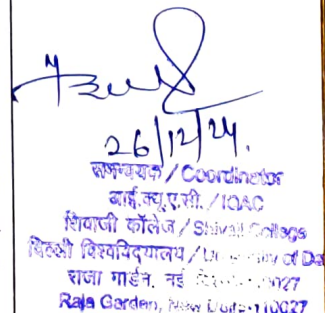 26/12/24.
समन्वयक / Coordinator
आई.क्यू.ए.सी. / IQAC
शिवाजी कॉलेज / Shivaji College
दिल्ली विश्वविद्यालय / University of Del
राजा गार्डन, नई 0027
Raja Garden, New Delhi-110027